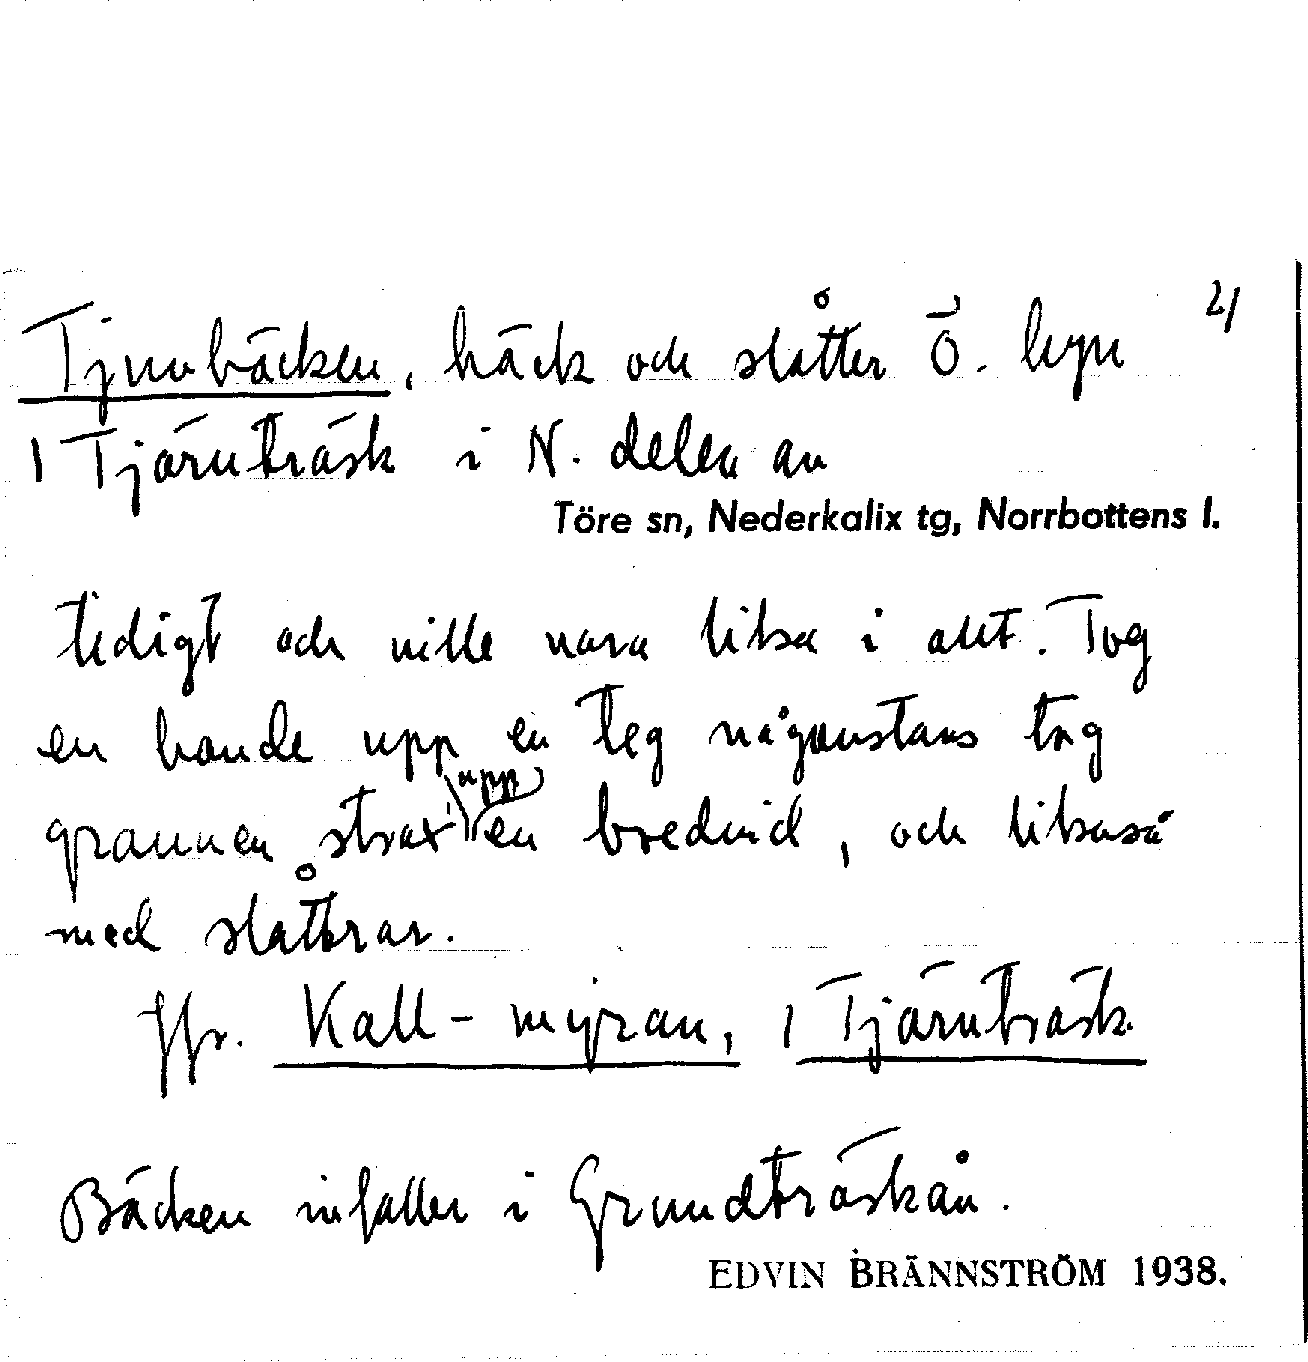 2/
Tjuvbäcken, bäck och slåtter Ö. byn
1 Tjärnträsk i N. delen av
Töre sn, Nederkalix tg, Norrbottens l.
tidigt och ville vara lika i allt. Tog
en bonde upp en teg någonstans tog
grannen strax upp en bredvid, och likaså
med slåttrar.
Jfr. Kall-myran, 1 Tjärnträsk
Bäcken infaller i Grundträskån.
EDVIN BRÄNNSTRÖM 1938.